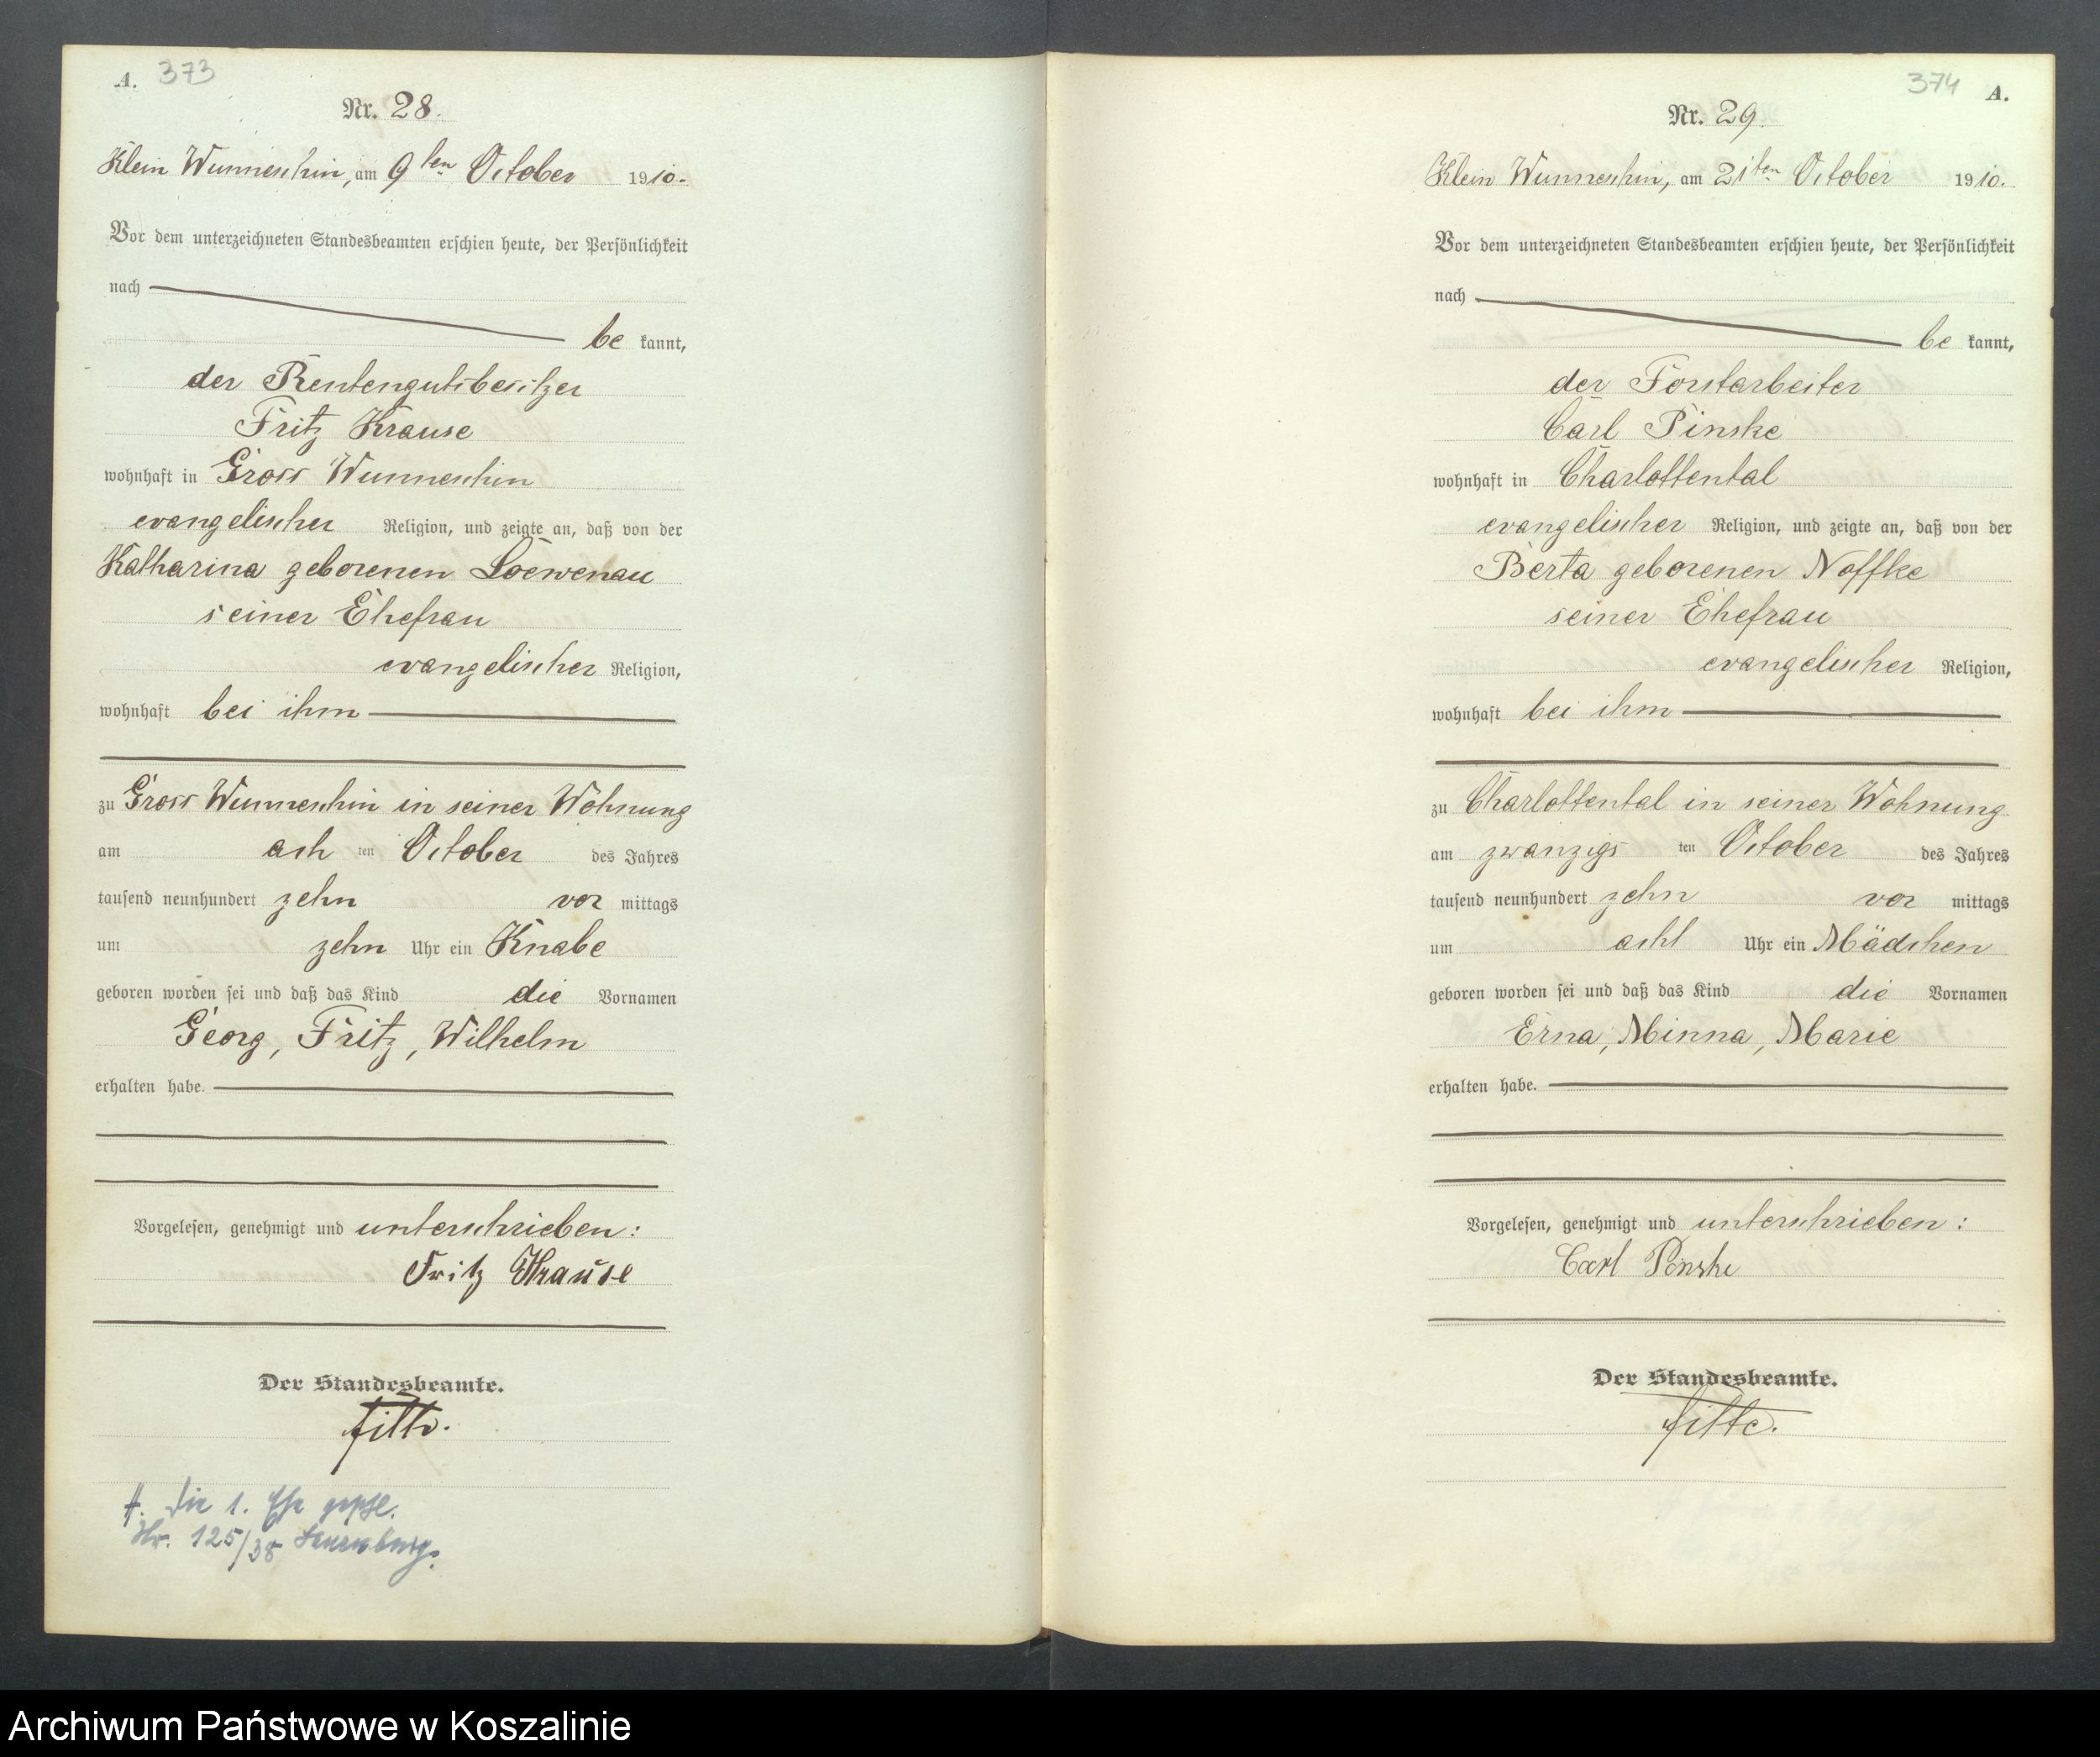 A. 373
Nr. 28.
Klein Wunneschin, am 9ten October 1910.
Vor dem unterzeichneten Standesbeamten erschien heute, der Persönlichkeit
nach
be kannt,
der Rentengutsbesitzer
Fritz Krause
wohnhaft in Gross Wunneschin
evangelischer Religion, und zeigte an, daß von der
Katharina geborenen Loewenau
seiner Ehefrau
evangelischer Religion,
wohnhaft bei ihm
zu Gross Wunneschin in seiner Wohnung
am ach ten October des Jahres
tausend neunhundert zehn vor mittags
um zehn Uhr ein Knabe
geboren worden sei und daß das Kind die Vornamen
Georg, Fritz, Wilhelm
erhalten habe.
Vorgelesen, genehmigt und unterschrieben:
Fritz Krause
Der Standesbeamte.
die 1. Ehe
Nr. 125/38 Lauenburg.
374 A.
Nr. 29.
Klein Wunneschin, am 21ten October 1910.
Vor dem unterzeichneten Standesbeamten erschien heute, der Persönlichkeit
nach
be kannt,
der Forstarbeiter
Carl Pinske
wohnhaft in Charlottental
evangelischer Religion, und zeigte an, daß von der
Berta geborenen Noffke
seiner Ehefrau
evangelischer Religion,
wohnhaft bei ihm
zu Charlottental in seiner Wohnung
am zwanzigs ten October des Jahres
tausend neunhundert zehn vor mittags
um acht Uhr ein Mädchen
geboren worden sei und daß das Kind die Vornamen
Erna, Minna, Marie
erhalten habe.
Vorgelesen, genehmigt und unterschrieben:
Carl Pinske
Der Standesbeamte.
Archiwum Państwowe w Koszalinie